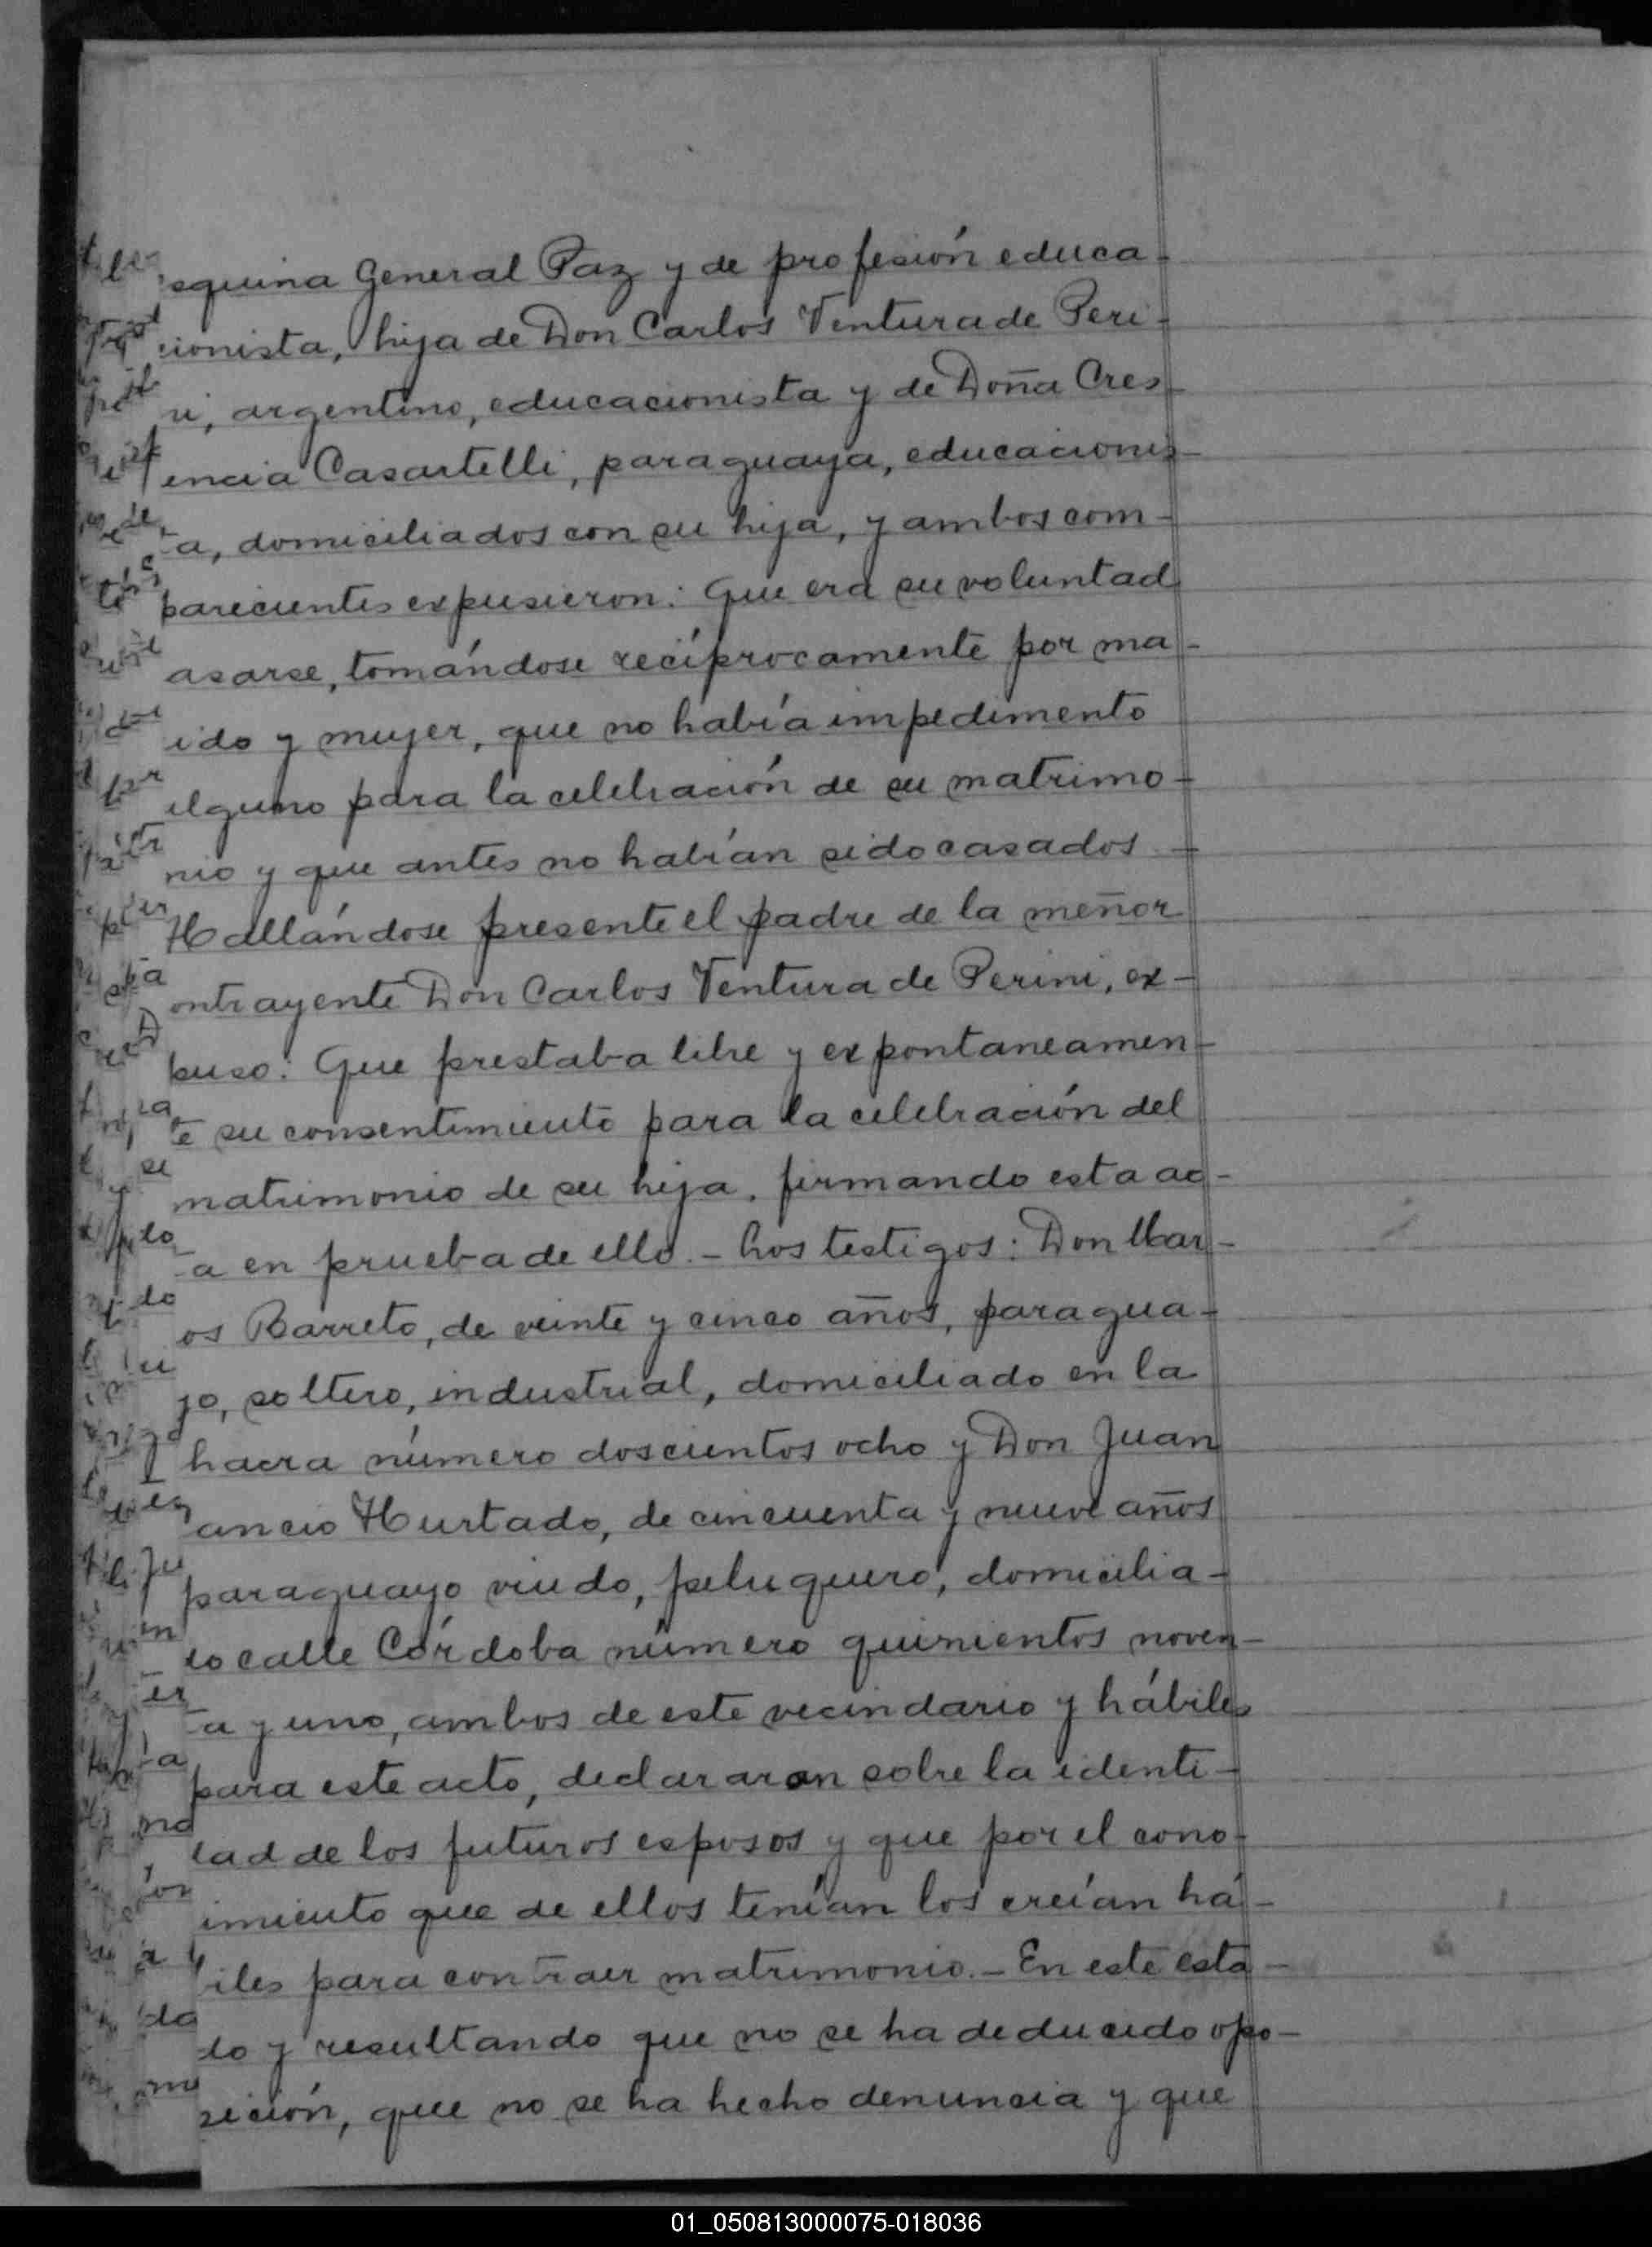 esquina General Paz y de profesión educa-
cionista, hija de Don Carlos Ventura de Peri-
ni, argentino, educacionista y de Doña Cres-
encia Casartelli, paraguaya, educacionis-
ta, domiciliados con su hija, y ambos com-
parecientes expusieron: Que era su voluntad
asarse, tomándose recíprocamente por ma-
ido y mujer, que no había impedimento
alguno para la celebración de su matrimo-
nio y que antes no habían sido casados.-
Hallándose presente el padre de la meñor
ontrayente Don Carlos Ventura de Perini, ex-
puso: Que prestaba libre y expontaneamen-
te su consentimiento para la celebración del
matrimonio de su hija, firmando esta ac-
ta en prueba de ello.- Los testigos: Don Mar-
os Barreto, de veinte y cinco años, paragua-
yo, soltero, industrial, domiciliado en la
hacra número doscientos ocho y Don Juan
ancio Hurtado, de cincuenta y nueve años
paraguayo viudo, peluquero, domicilia-
do calle Córdoba número quinientos noven-
ta y uno, ambos de este vecindario y hábiles
para este acto, declararon sobre la identi-
dad de los futuros esposos y que por el cono-
imiento que de ellos tenían los creían há-
iles para contraer matrimonio.- En este esta-
do y resultando que no se ha deducido opo-
sición, que no se ha hecho denuncia y que
01_050813000075-018036